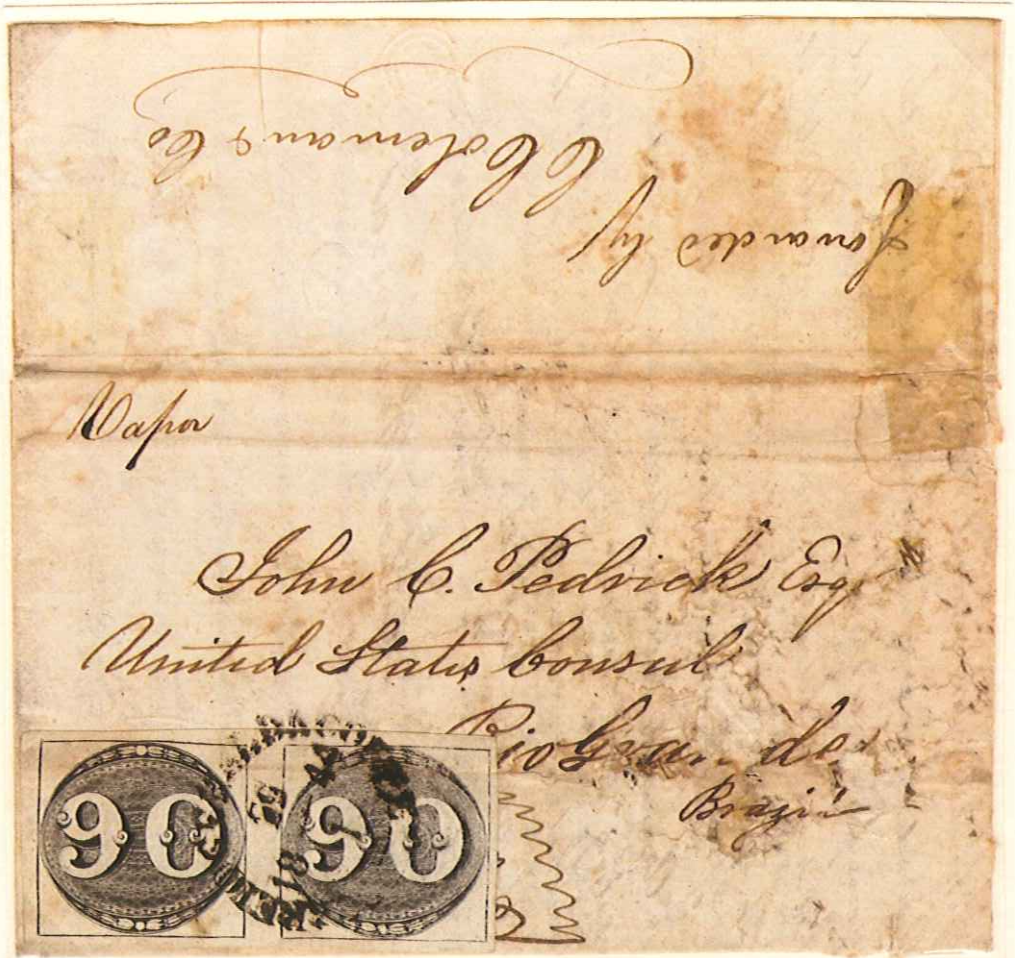 Forwarded by
C Coleman & Co
Vapor
John C. Pedrick Esqr
United States Consul
Rio Grande
Brazil
90 90